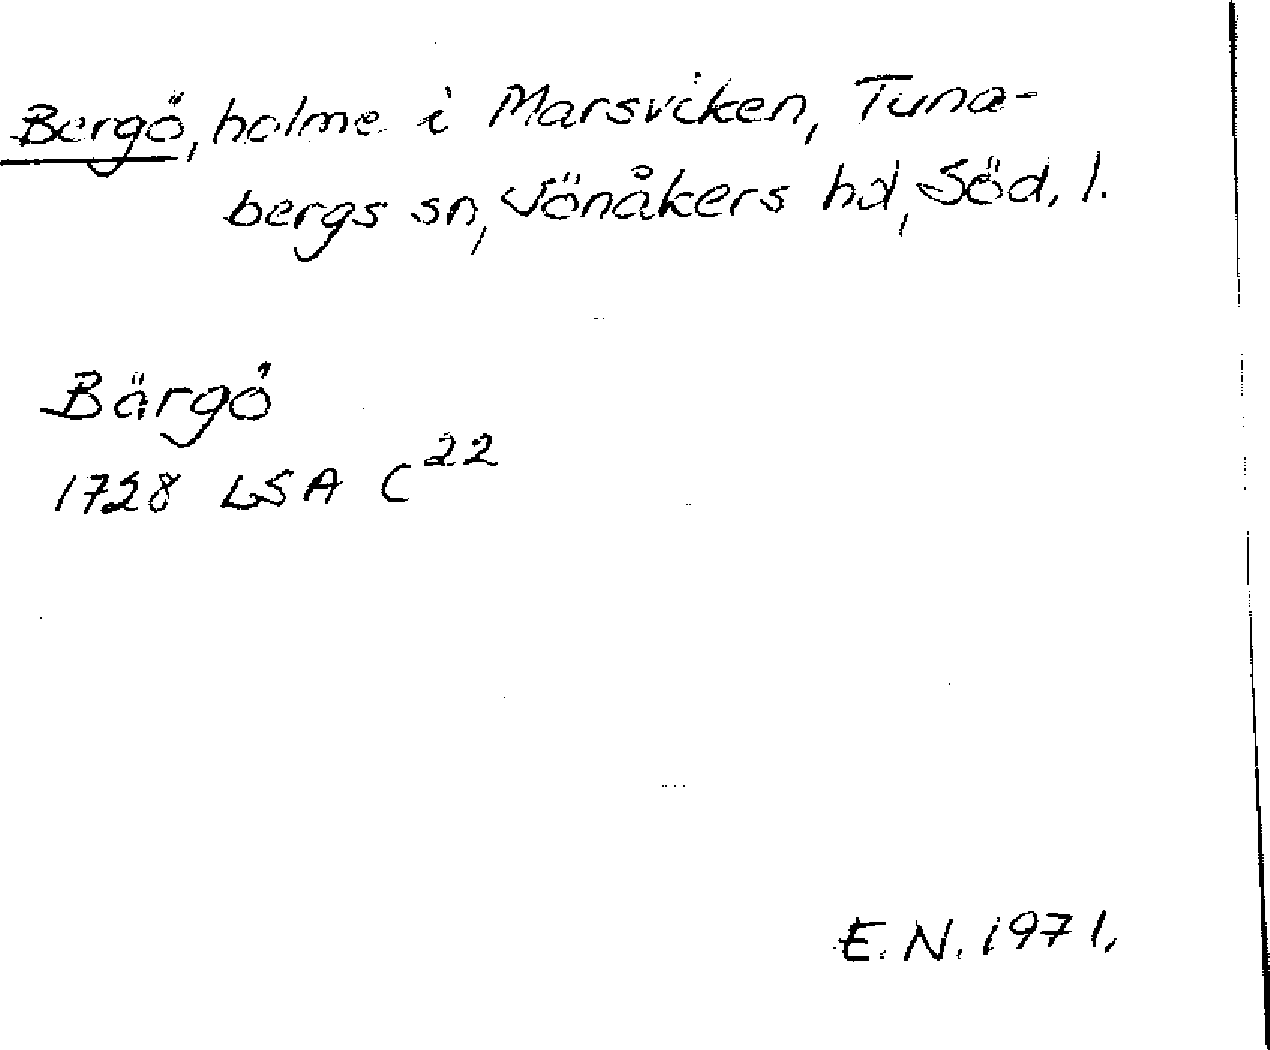 Bergö, holme i Marsviken, Tuna-
bergs sn, Jönåkers hd, Söd. l.
Bärgö
1728 LSA C²²
E.N. 1971.